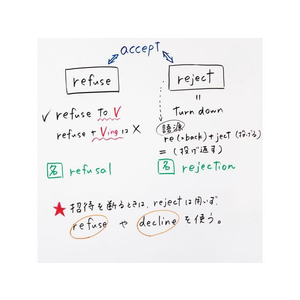 accept
refuse
reject
✓ refuse to V
refuse + Vingは ×
名 refusal
=
Turn down
語源
re (=back) + ject (投げる)
= (投げ返す)
名 rejection
★ 招待を断るときは、rejectは用いず、
refuse や decline を使う。